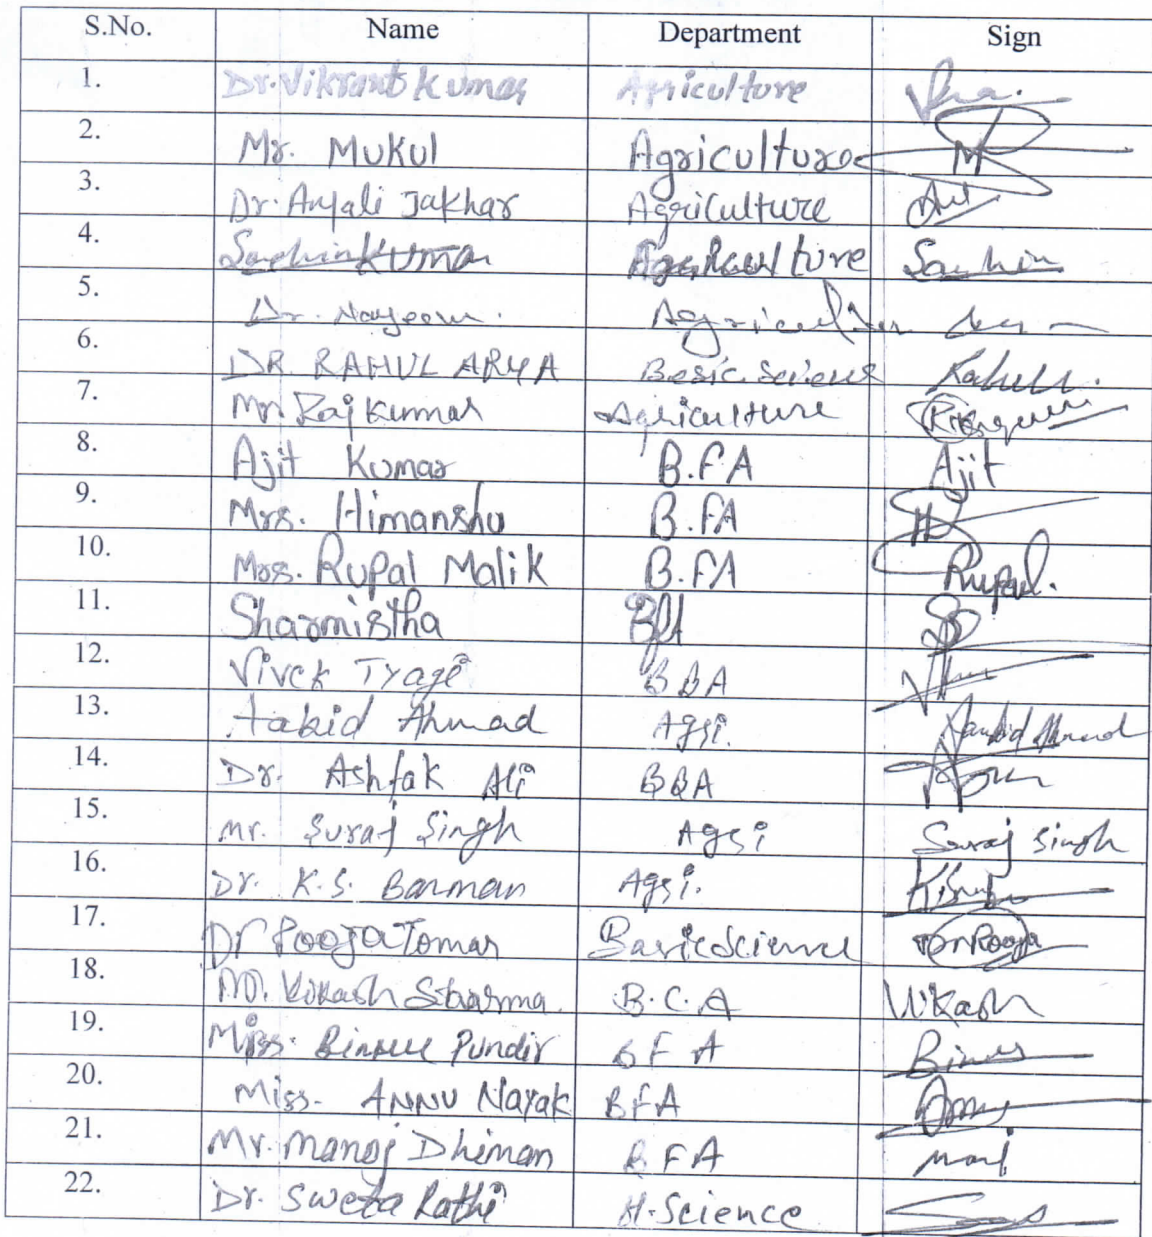 S.No. Name Department Sign
1. Dr. Vikrant Kumar Agriculture
2. Mr. Mukul Agriculture M
3. Dr. Anjali Jakhar Agriculture
4. Sachin Kumar Agriculture Sachin
5. Dr. Nayeem. Agriculture
6. DR. RAHUL ARYA Besic. Rahul.
7. Mr. Raj Kumar Agriculture
8. Ajit Kumar B.F.A Ajit
9. Mrs. Himanshu B.FA H
10. Mrs. Rupal Malik B.FA Rupal.
11. Sharmistha BFA
12. Vivek Tyagi BBA
13. Aabid Ahmad Agri. Aabid Ahmad
14. Dr. Ashfak Ali BBA
15. mr. Suraj Singh Agri Suraj Singh
16. Dr. K.S. Barman Agri.
17. Dr Pooja Tomar Basic Science Dr Pooja
18. Vikash Sharma B.C.A Vikash
19. Miss. Pundir BFA
20. Miss. ANNU Nayak BFA
21. Mr. Manoj Dhiman BFA
22. Dr. Sweta Rathi H.Science